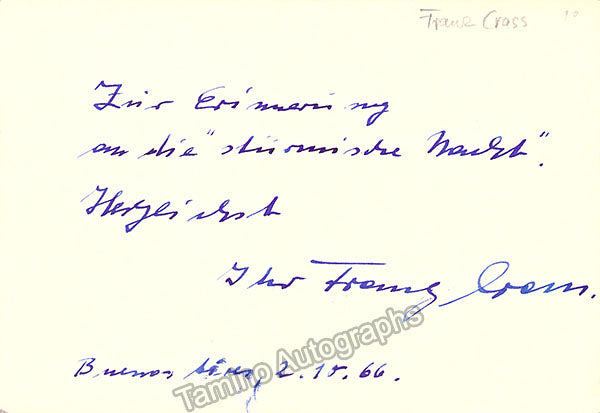 Franz Crass 10
Zur Erinnerung
an die "stürmische Nacht".
Herzlichst
Ihr Franz Crass.
Buenos Aires, 2.10.66.
Tamino Autographs